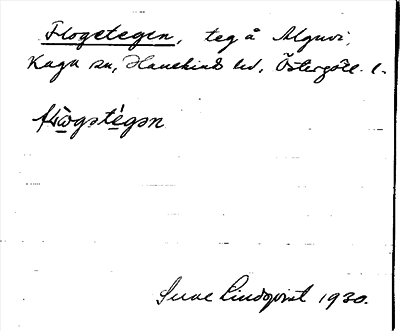 Flogetegen, teg å Alguvi,
Kaga sn, Hanekinds hd, Östergötl. l.
Sune Lindqvist 1930.